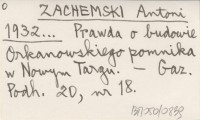 ZACHEMSKI Antoni
1932... Prawda o budowie
Orkanowskiego pomnika
w Nowym Targu. – Gaz.
Podh. 20, nr 18.